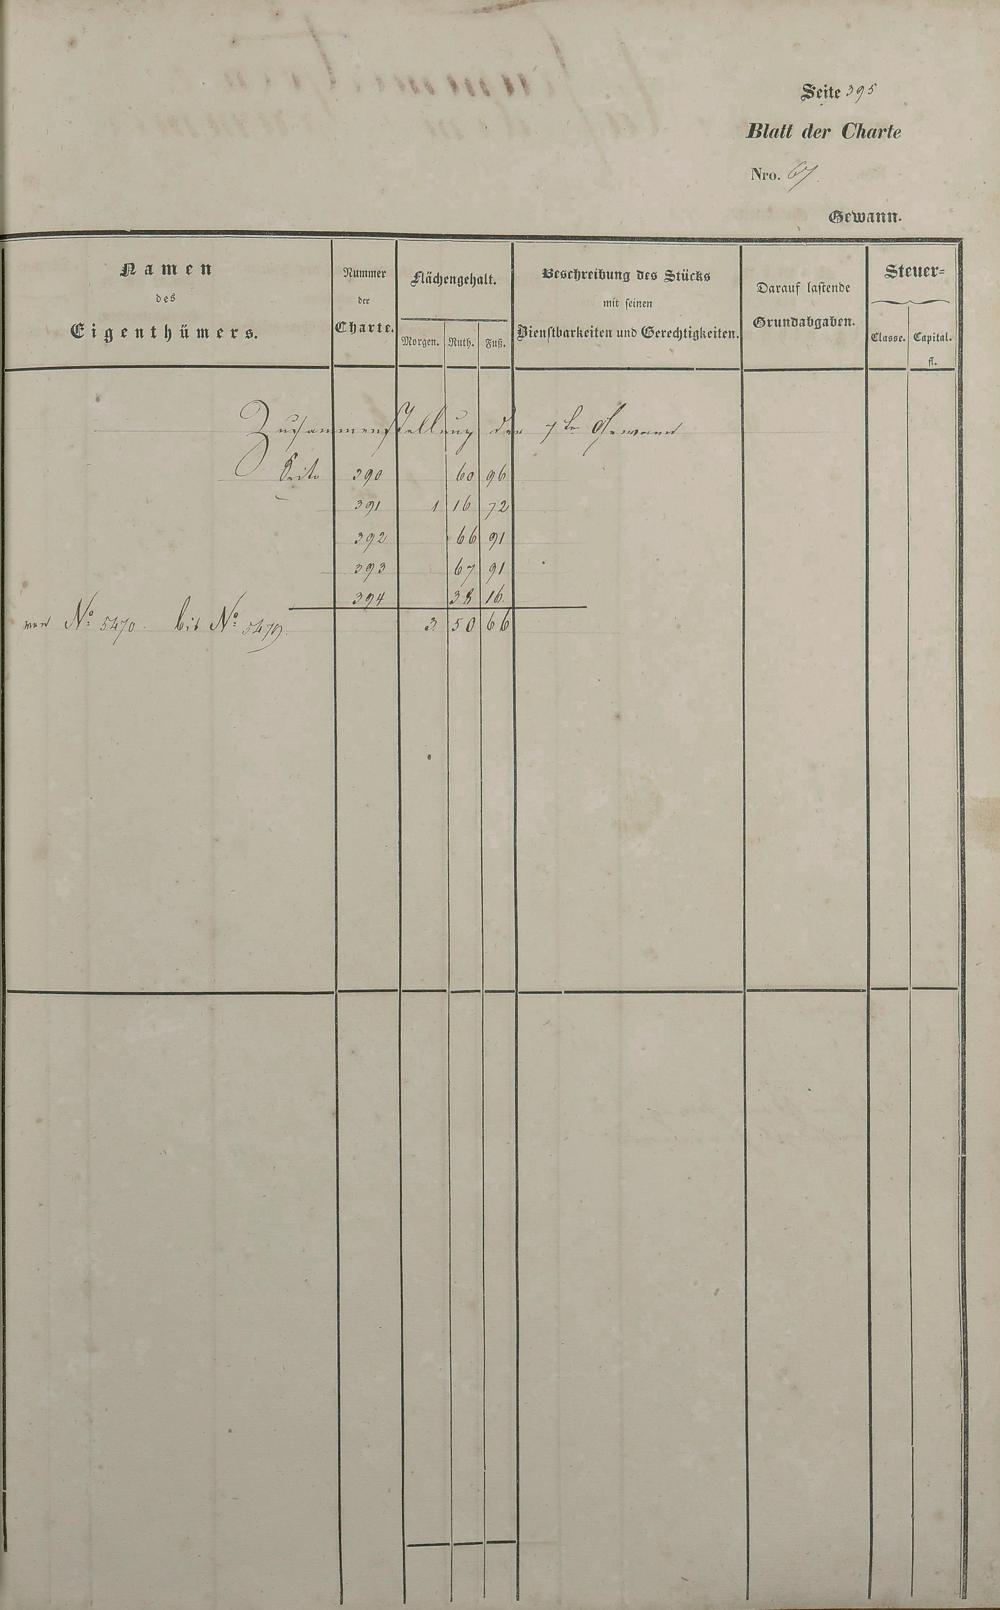 Seite 395
Blatt der Charte
Nro. 67
Gewann.
Namen des Eigenthümers.
Nummer der Charte.
Flächengehalt.
Morgen. Ruth. Fuß.
Beschreibung des Stücks mit seinen Dienstbarkeiten und Gerechtigkeiten.
Darauf lastende Grundabgaben.
Steuer=
Classe. Capital. fl.
Zusammenstellung der 7te Gewann
Seite 390 60 96
391 1 16 72
392 66 91
393 67 91
394 38 16
von No. 5470. bis No. 5479. 3 50 66